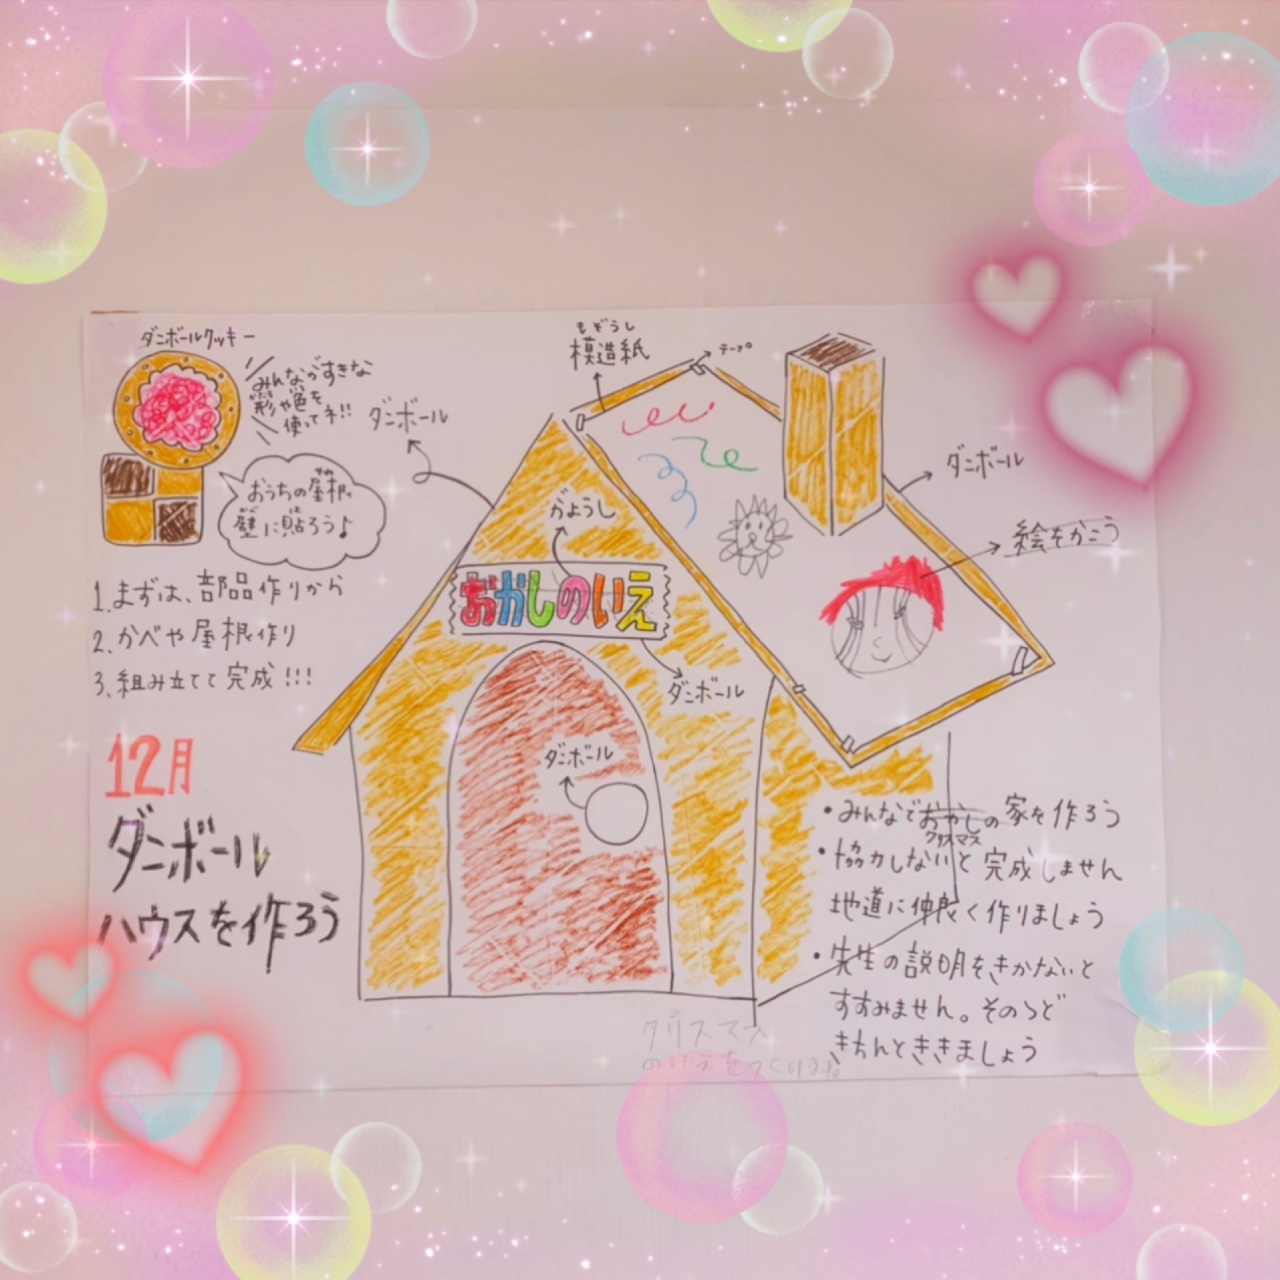 ダンボールクッキー
みんながすきな
形や色を
使ってネ!!
おうちの屋根
壁に貼ろう♪
1.まずは、部品作りから
2.かべや屋根作り
3.組み立てて完成!!!
12月
ダンボール
ハウスを作ろう
ダンボール
もぞうし
模造紙
テープ
ダンボール
絵をかこう
がようし
おかしのいえ
ダンボール
ダンボール
・みんなでおかしの家を作ろう
クリスマス
・協力しないと完成しません
地道に仲良く作りましょう
・先生の説明をきかないと
すすみません。そのつど
きちんとききましょう
クリスマス
のいえをつくります。